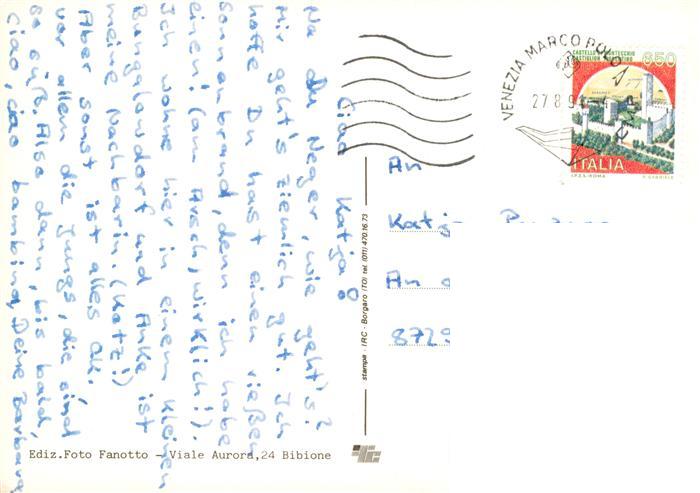 Ciao Katja!
Na du Neger, wie geht's?
Mir geht's ziemlich gut. Ich
hoffe Du hast einen rießen
Sonnenbrand, denn ich habe
einen! (am Arsch, wirklich!).
Ich wohne hier in einem kleinen
Bungalowdorf und Anke ist
meine Nachbarin.
Aber sonst ist alles ok.
Vor allem die Jungs, die sind
so süß. Also dann, bis bald,
Ciao, ciao bambina, Deine Barbara
Ediz.Foto Fanotto - Viale Aurora,24 Bibione
stampa - IRC - Borgaro (TO) tel. (011) 470.16.73
VENEZIA MARCO POLO
27 8 9
CASTELLO MONTECCHIO
CASTIGLION
650
ITALIA
I.P.Z.S.-ROMA
An
Katja
An
8729